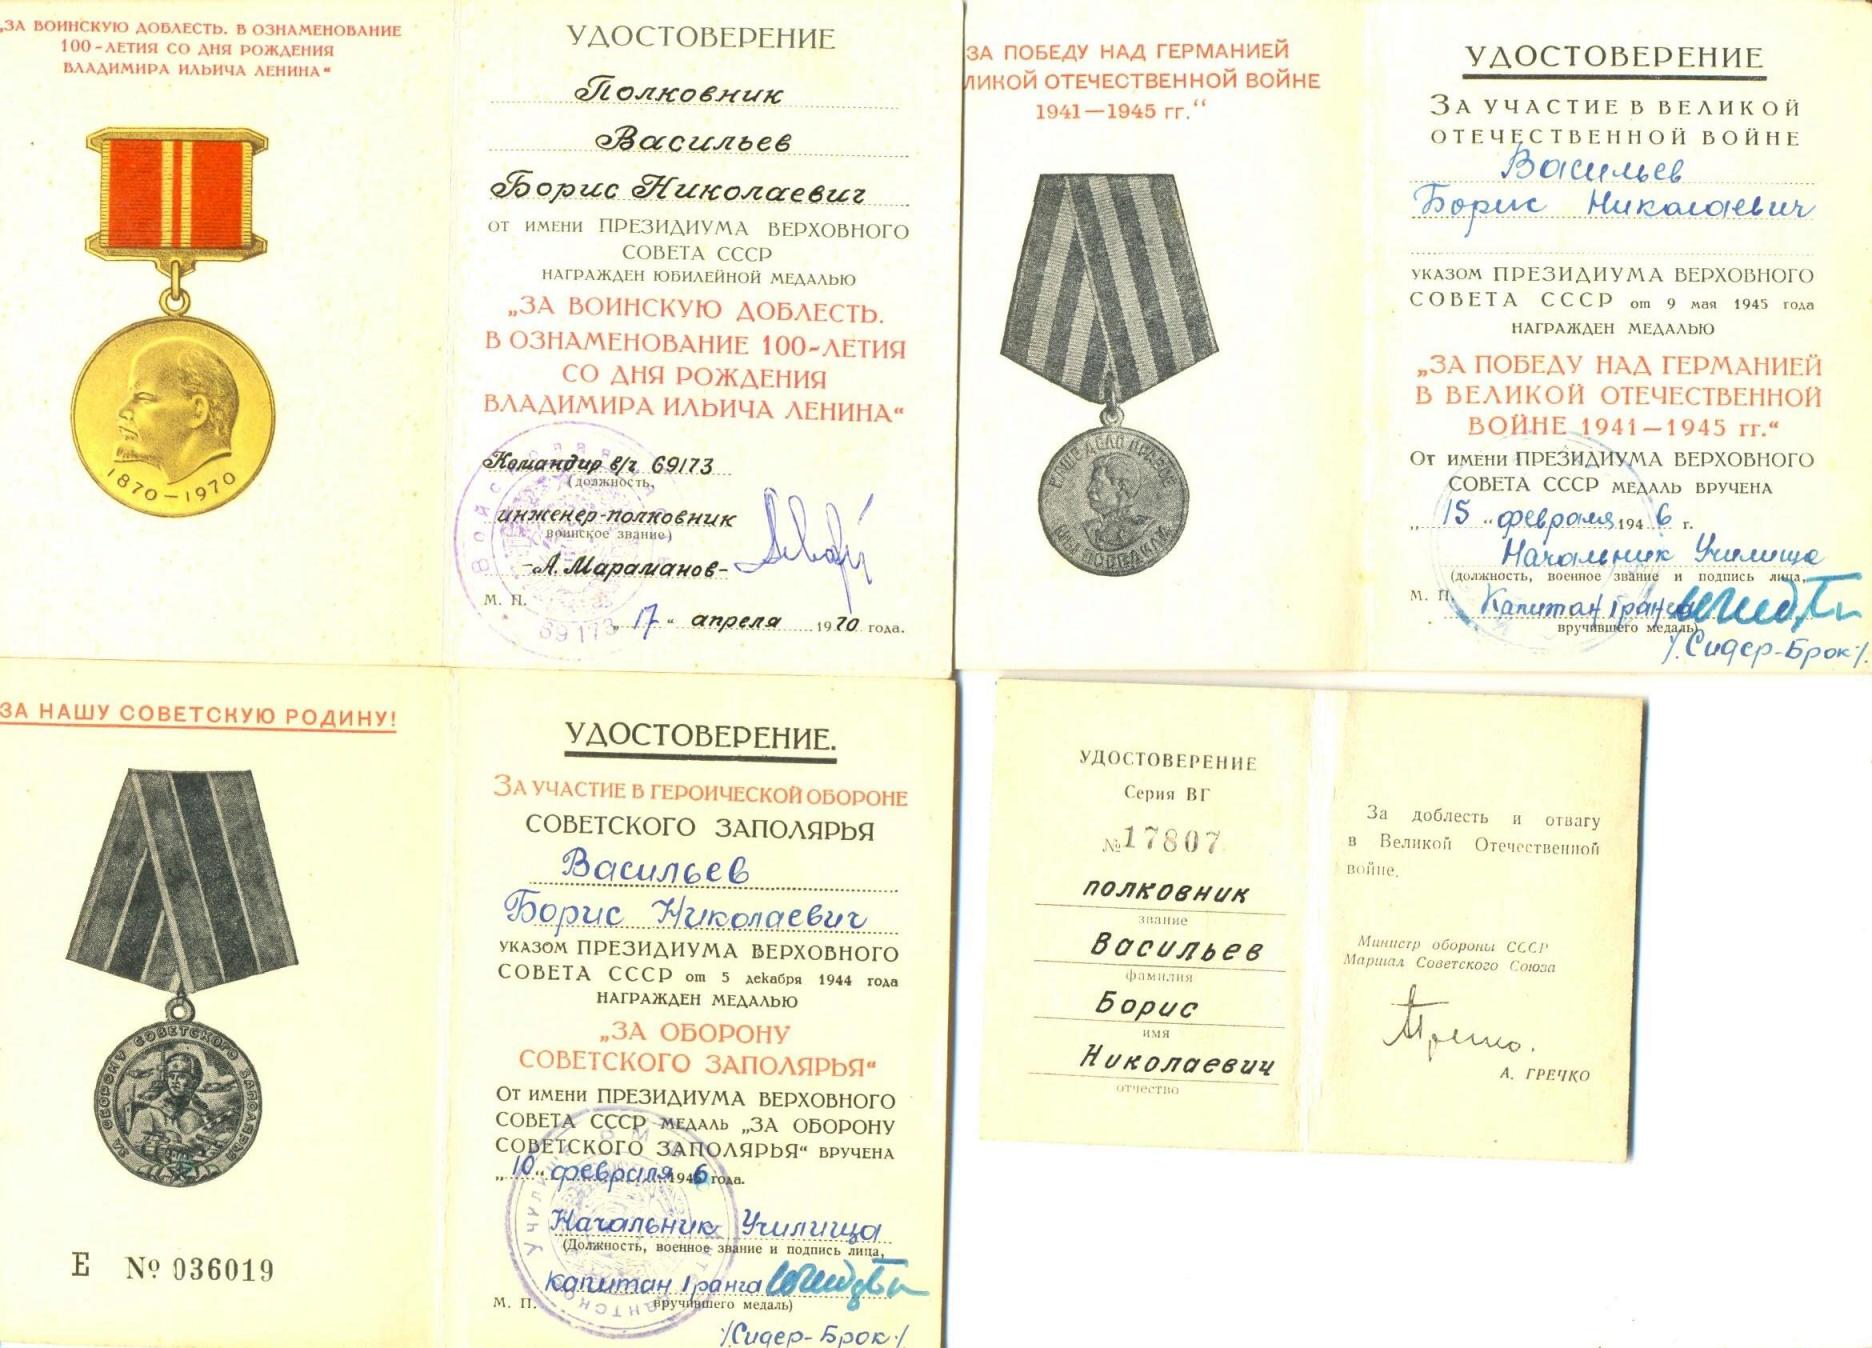 „ЗА ВОИНСКУЮ ДОБЛЕСТЬ. В ОЗНАМЕНОВАНИЕ
100-ЛЕТИЯ СО ДНЯ РОЖДЕНИЯ
ВЛАДИМИРА ИЛЬИЧА ЛЕНИНА“
1870–1970
УДОСТОВЕРЕНИЕ
Полковник
Васильев
Борис Николаевич
ОТ ИМЕНИ ПРЕЗИДИУМА ВЕРХОВНОГО
СОВЕТА СССР
НАГРАЖДЕН ЮБИЛЕЙНОЙ МЕДАЛЬЮ
„ЗА ВОИНСКУЮ ДОБЛЕСТЬ.
В ОЗНАМЕНОВАНИЕ 100-ЛЕТИЯ
СО ДНЯ РОЖДЕНИЯ
ВЛАДИМИРА ИЛЬИЧА ЛЕНИНА“
Командир в/ч 69173
(должность,
инженер-полковник
воинское звание)
А. Мараманов
М. П.
69173
„17“ апреля 1970 года.
ЗА ПОБЕДУ НАД ГЕРМАНИЕЙ
ЛИКОЙ ОТЕЧЕСТВЕННОЙ ВОЙНЕ
1941—1945 гг.“
НАШЕ ДЕЛО ПРАВОЕ
МЫ ПОБЕДИЛИ
УДОСТОВЕРЕНИЕ
ЗА УЧАСТИЕ В ВЕЛИКОЙ
ОТЕЧЕСТВЕННОЙ ВОЙНЕ
Васильев
Борис Николаевич
УКАЗОМ ПРЕЗИДИУМА ВЕРХОВНОГО
СОВЕТА СССР от 9 мая 1945 года
НАГРАЖДЕН МЕДАЛЬЮ
„ЗА ПОБЕДУ НАД ГЕРМАНИЕЙ
В ВЕЛИКОЙ ОТЕЧЕСТВЕННОЙ
ВОЙНЕ 1941—1945 гг.“
ОТ ИМЕНИ ПРЕЗИДИУМА ВЕРХОВНОГО
СОВЕТА СССР МЕДАЛЬ ВРУЧЕНА
„15“ февраля 1946 г.
Начальник Училища
(должность, военное звание и подпись лица,
М. П. Капитан 1 ранга
вручившего медаль)
/Сидер-Брок/
ЗА НАШУ СОВЕТСКУЮ РОДИНУ!
ЗА ОБОРОНУ СОВЕТСКОГО ЗАПОЛЯРЬЯ
Е № 036019
УДОСТОВЕРЕНИЕ.
ЗА УЧАСТИЕ В ГЕРОИЧЕСКОЙ ОБОРОНЕ
СОВЕТСКОГО ЗАПОЛЯРЬЯ
Васильев
Борис Николаевич
УКАЗОМ ПРЕЗИДИУМА ВЕРХОВНОГО
СОВЕТА СССР от 5 декабря 1944 года
НАГРАЖДЕН МЕДАЛЬЮ
„ЗА ОБОРОНУ
СОВЕТСКОГО ЗАПОЛЯРЬЯ“
ОТ ИМЕНИ ПРЕЗИДИУМА ВЕРХОВНОГО
СОВЕТА СССР МЕДАЛЬ „ЗА ОБОРОНУ
СОВЕТСКОГО ЗАПОЛЯРЬЯ“ ВРУЧЕНА
„10“ февраля 1946 года.
Начальник Училища
(Должность, военное звание и подпись лица,
капитан 1 ранга
М. П. вручившего медаль)
/Сидер-Брок/
УДОСТОВЕРЕНИЕ
Серия ВГ
№ 17807
полковник
звание
Васильев
фамилия
Борис
имя
Николаевич
отчество
За доблесть и отвагу
в Великой Отечественной
войне.
Министр обороны СССР
Маршал Советского Союза
А. ГРЕЧКО